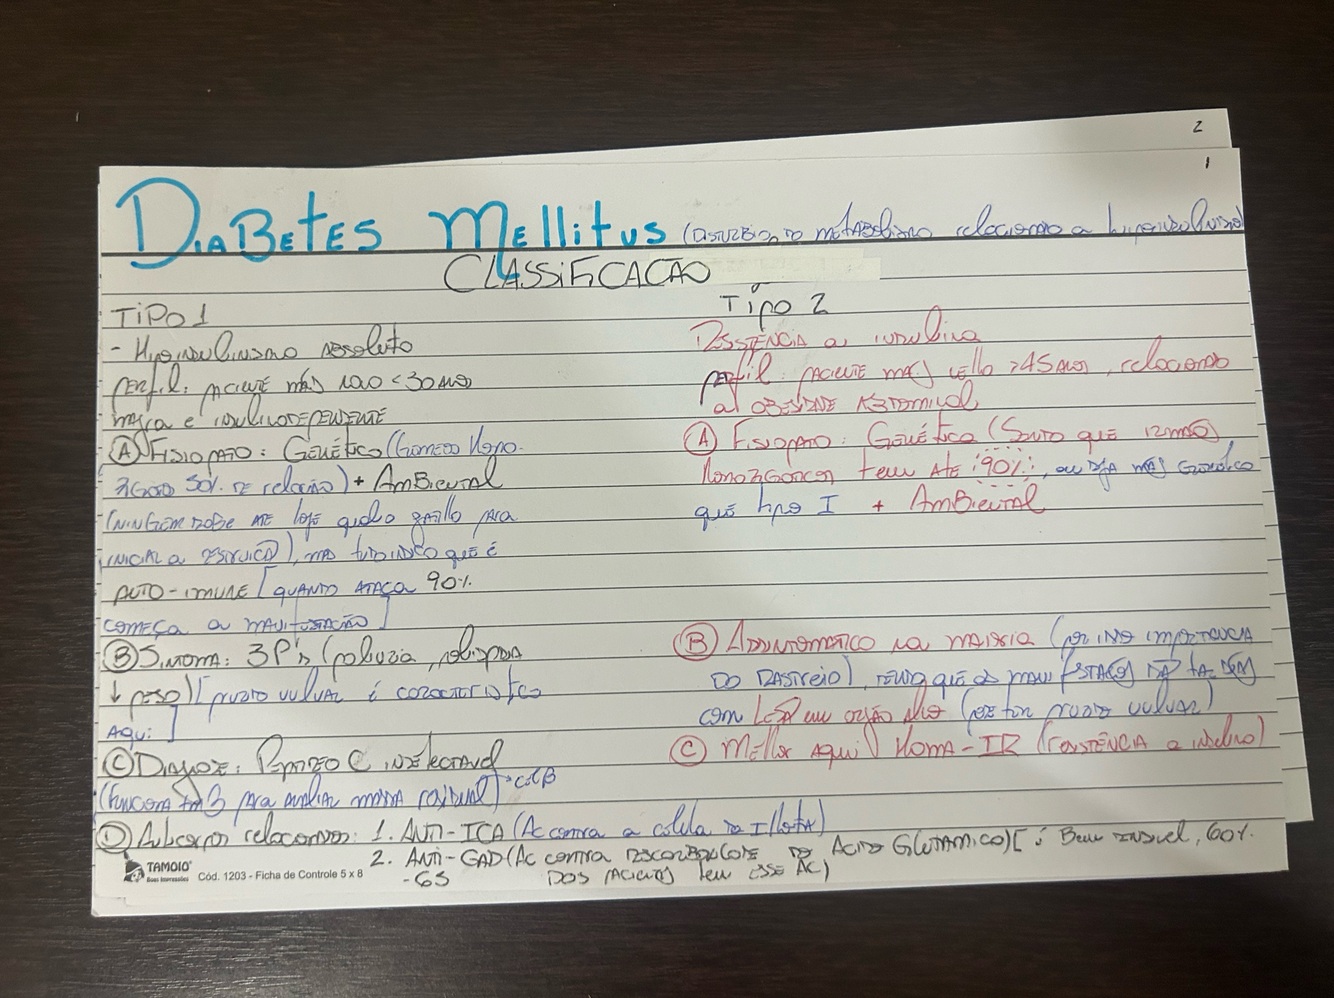 2
1
DiaBetes Mellitus (distúrbio do metabolismo relacionado a hiperinsulinismo)
CLASSIFICAÇÃO
TIPO 1
Tipo 2
- Hipoinsulinismo absoluto
Perfil: paciente mais novo <30 anos
magra e insulinodependente
Resistência a insulina
perfil: paciente mais velho >45 anos, relacionado
a obesidade abdominal
(A) Fisiopato: Genético (Gêmeo Homo-
zigoto 50% de relação) + Ambiental
(ninguém sabe até hoje qual o gatilho para
iniciar a destruição), mas tudo indica que é
auto-imune [quando ataca 90%
começa a manifestação]
(A) Fisiopato: Genética (Sendo que irmãos
monozigóticos tem até 90%, ou seja mais genético
que tipo I + Ambiental
(B) Sintoma: 3P's (poliuria, polidipsia
↓ peso) [prurido vulvar é característico
Aqui]
(B) Assintomático na maioria (por isso importancia
do rastreio), sendo que as manifestações já
com Lesão em orgão alvo (pode ter prurido vulvar)
(C) Diagnose: Peptideo C indetectavel
(Funciona para avaliar massa residual) cel β
(C) Melhor aqui HOMA-IR (resistência a insulina)
(D) Autocorpos relacionados: 1. Anti-ICA (Ac contra a celula da Ilhota)
2. Anti-GAD (Ac contra descarboxilase do Acido Glutamico) [é Bem sensivel, 60%
-65 dos pacientes tem esse AC)
TAMOIO
Cód. 1203 - Ficha de Controle 5 x 8